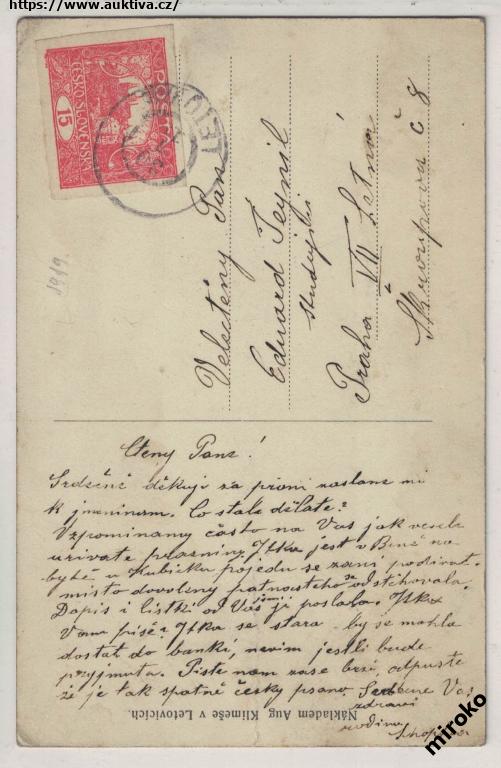 https://www.auktiva.cz/
POŠTA
ČESKO-SLOVENSKÁ
15
1919
Velectěný Pan
Eduard Tejnil
studující
Praha VII Letná
č 8
Cteny Pane!
Srdečně děkuji za přání zaslane mi
k jmeninam. Co stale dělate?
Vzpominamy často na Vas jak vesele
uživate prazniny. Jtka jest v Brně na
bytě u Kubička pojedu se zámi podivat.
misto dovoleny patnacteho se odstěhovala.
Dopis i listki od Vás jsmi ji poslala. Jtka
Vam piše? Jtka se stara by se mohla
dostat do banki, nevim jestli bude
přyjmuta. Piste nam zase brzi, odpuste
že je tak spatně česky psano. Srdečne Vas
zdravi
rodina
Nákladem Aug Klimeše v Letovicích.
miroko